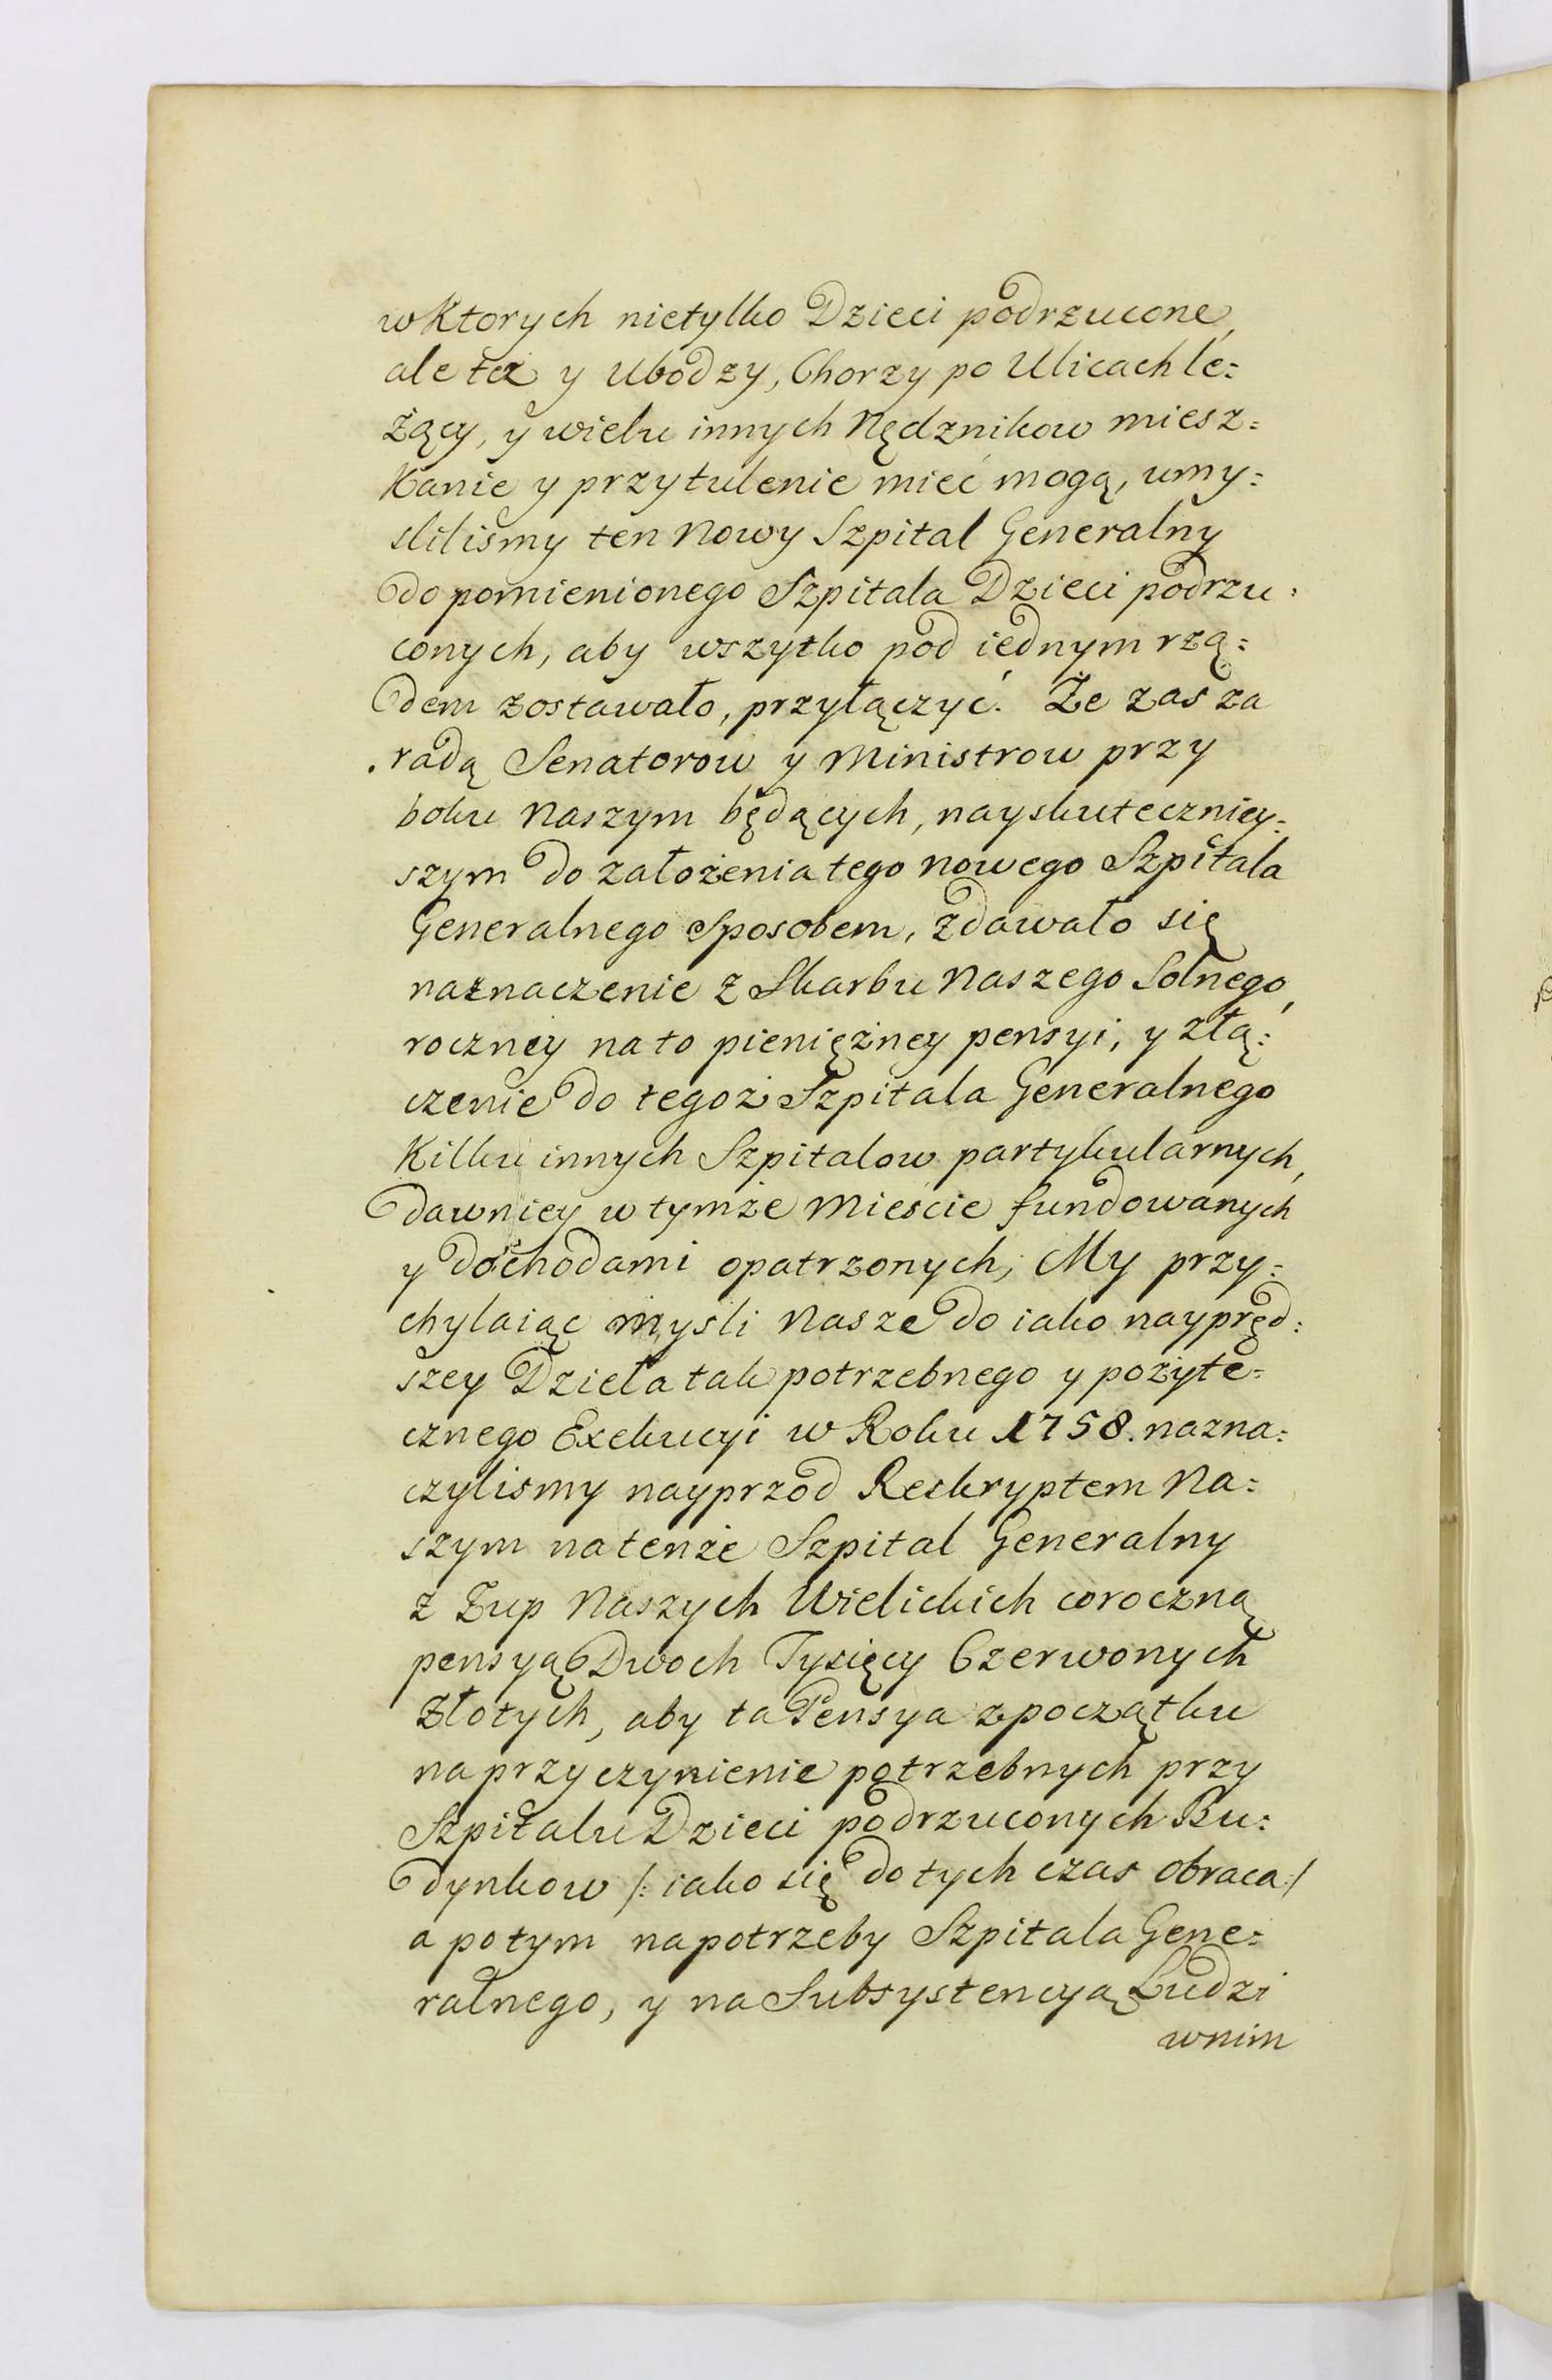 w Ktorych nietylko Dzieci podrzucone,
ale też y Ubodzy, Chorzy po Ulicach le=
żący, y wielu innych Nędznikow miesz=
Kanie y przytulenie mieć mogą, umy=
sliliśmy ten Nowy Szpital Generalny
do pomienionego Szpitala Dzieci podrzu=
conych, aby wszytko pod iednym rzą=
dem zostawało, przyłączyć. Że zas za
radą Senatorow y Ministrow przy
boku Naszym będących, nayskuteczniey=
szym do założenia tego nowego Szpitala
Generalnego Sposobem, zdawało się
naznaczenie z Skarbu Naszego Solnego,
roczney na to pieniężney pensyi, y złą=
czenie do tegoż Szpitala Generalnego
Kilku innych Szpitalow partykularnych,
dawniey w tymże Mieście fundowanych
y dochodami opatrzonych; My przy=
chylaiąc mysli Nasze do iako naypręd=
szey Dzieła tak potrzebnego y pożyte=
cznego Exekucyi w Roku 1758. nazna=
czylismy nayprzod Reskryptem Na=
szym na tenże Szpital Generalny
z Żup Naszych Wielickich coroczną
pensyą Dwoch Tysięcy Czerwonych
Złotych, aby ta Pensya z początku
na przyczynienie potrzebnych przy
Szpitalu Dzieci podrzuconych Bu=
dynkow /: iako się do tych czas obraca :/
a potym na potrzeby Szpitala Gene=
ralnego, y na Subsystencyą Ludzi
w nim